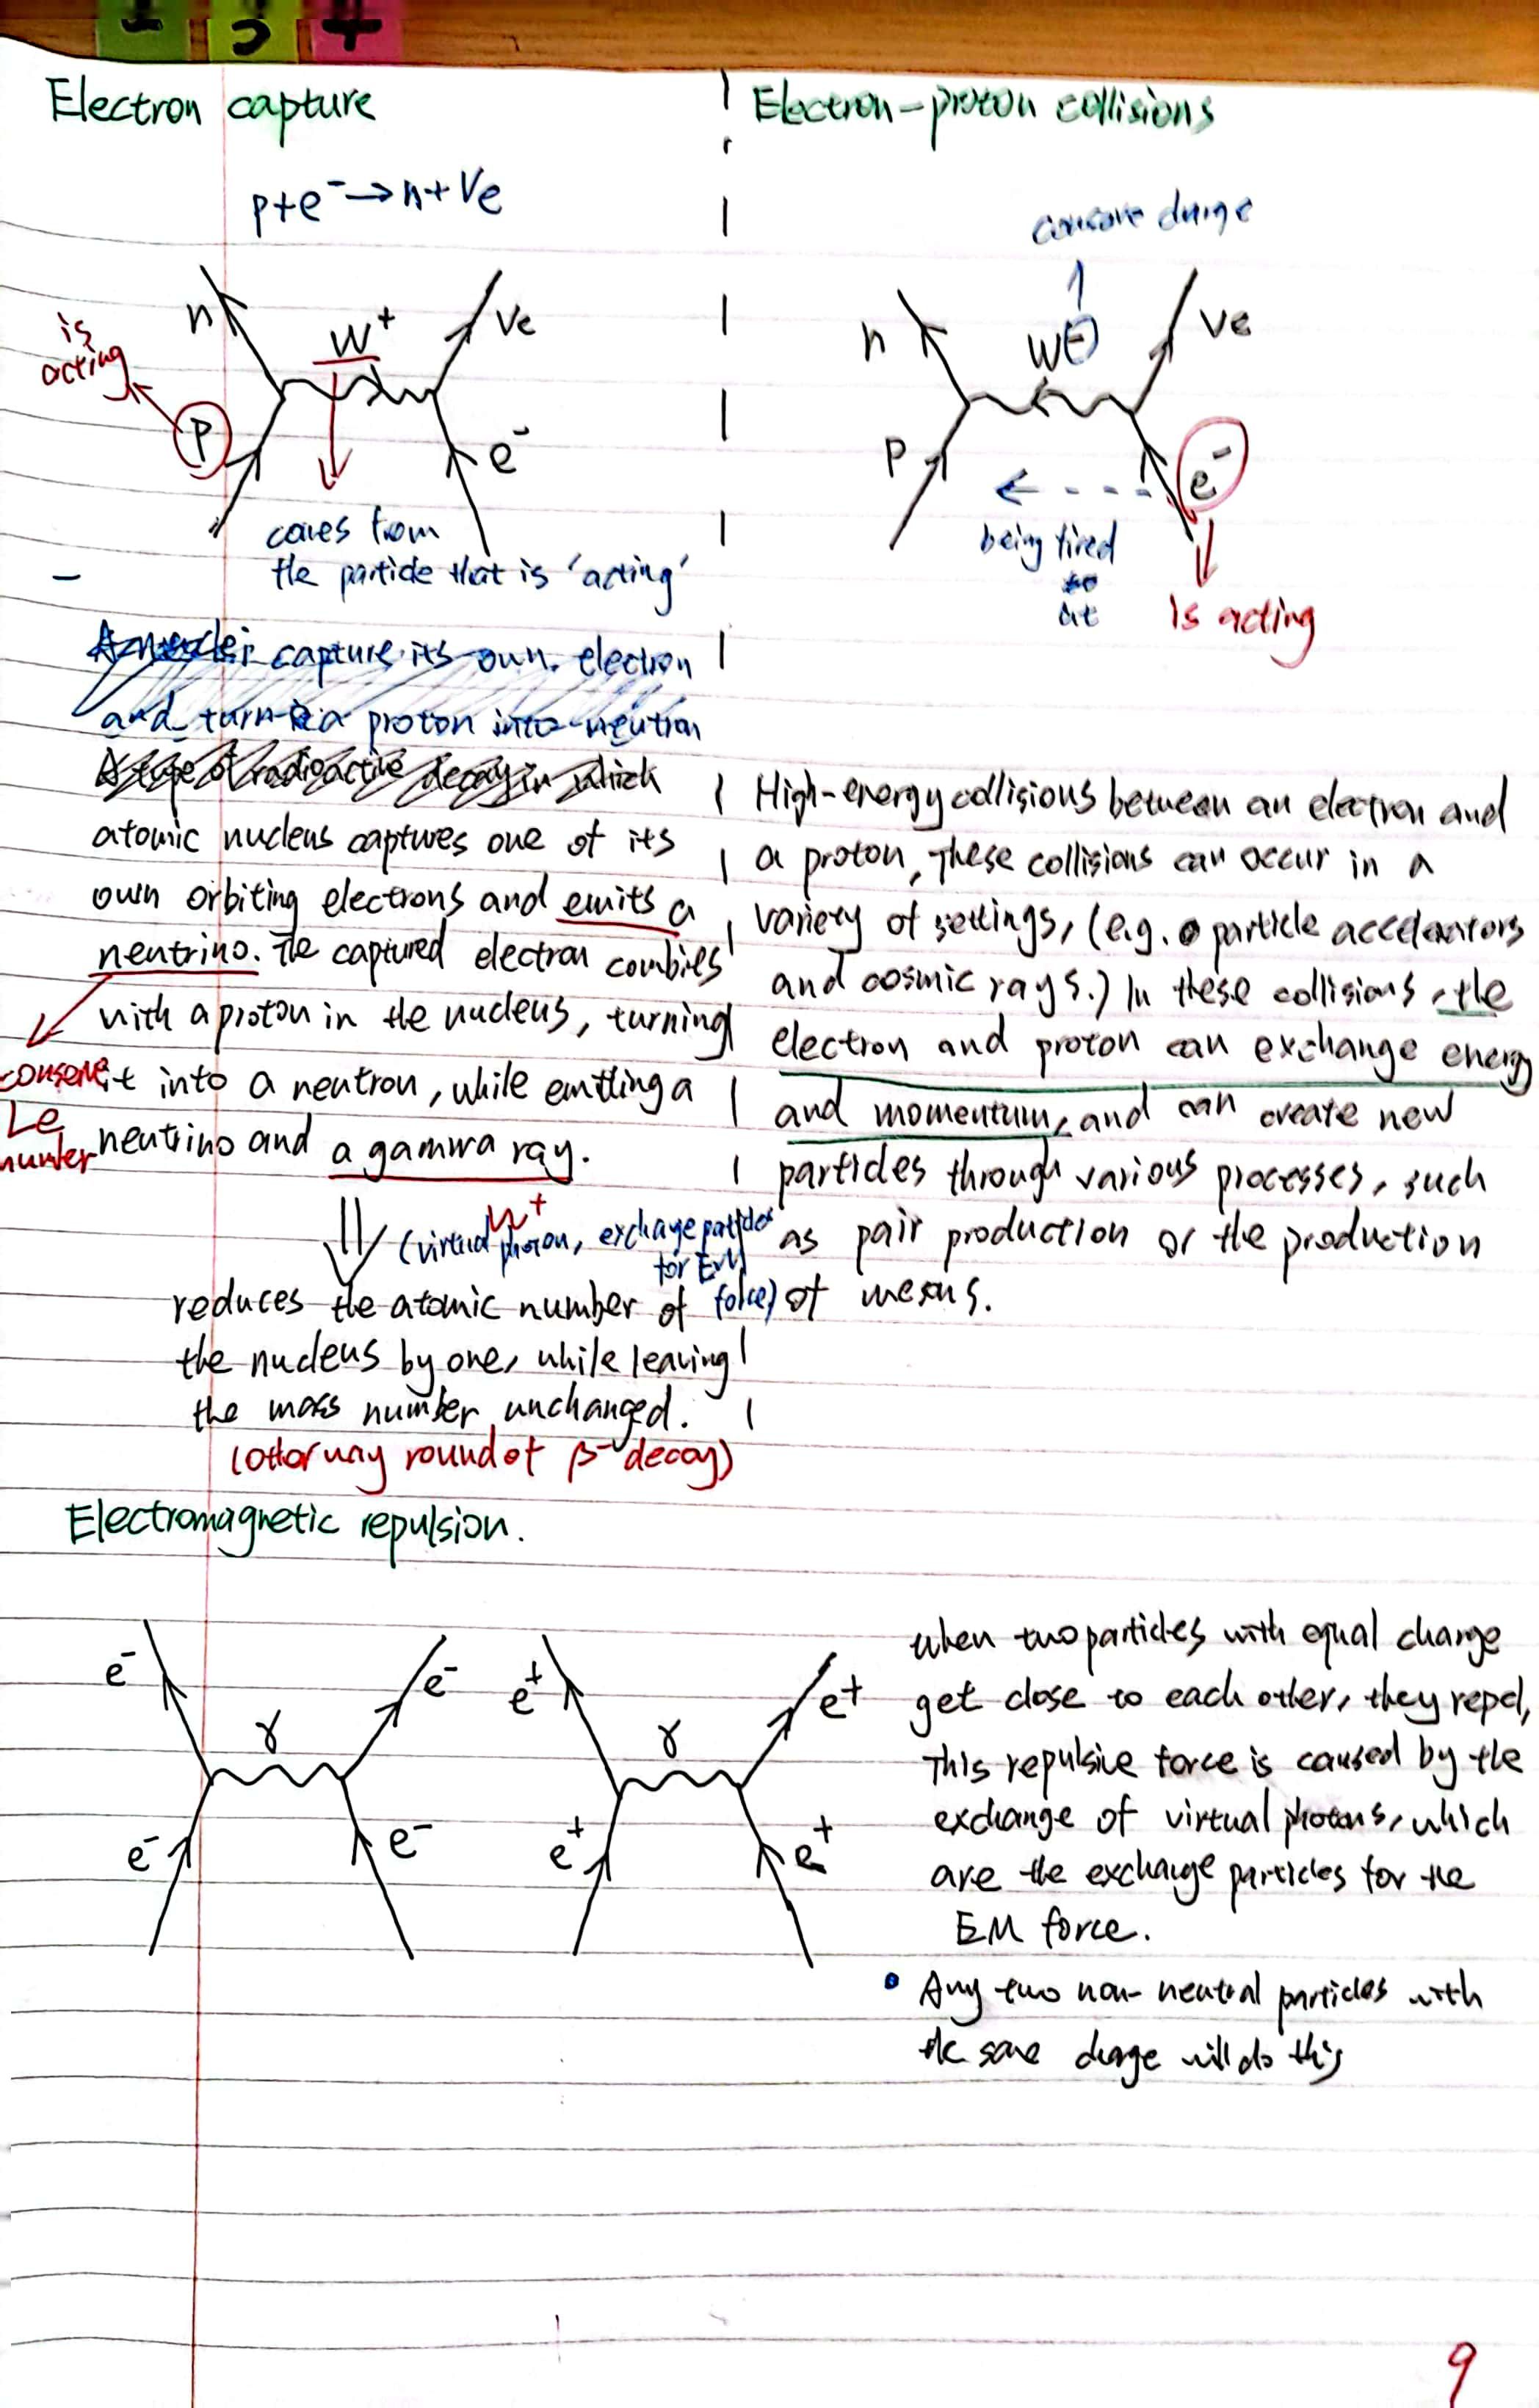 Electron capture
p+e⁻→n+Ve
n
W⁺
Ve
is
acting
P
e⁻
comes from
the particle that is 'acting'
capture its own electron
and turn a proton into neutron
A type of radioactive decay in which
atomic nucleus captures one of its
own orbiting electrons and emits a
neutrino. The captured electron combines
with a proton in the nucleus, turning
it into a neutron, while emitting a
neutrino and a gamma ray.
conserve
Le
number
W⁺
(virtual photon, exchange particles
for EM
force)
reduces the atomic number of
the nucleus by one, while leaving
the mass number unchanged.
(other way round of β⁻ decay)
Electron-proton collisions
conserve charge
n
W⊖
Ve
P
e⁻
being fired
at
is acting
High-energy collisions between an electron and
a proton, These collisions can occur in a
variety of settings, (e.g. particle accelerators
and cosmic rays.) In these collisions, the
electron and proton can exchange energy
and momentum, and can create new
particles through various processes, such
as pair production or the production
of mesons.
Electromagnetic repulsion.
e⁻
e⁻
γ
e⁻
e⁻
e⁺
e⁺
γ
e⁺
e⁺
when two particles with equal charge
get close to each other, they repel,
This repulsive force is caused by the
exchange of virtual photons, which
are the exchange particles for the
EM force.
• Any two non-neutral particles with
the same charge will do this
9